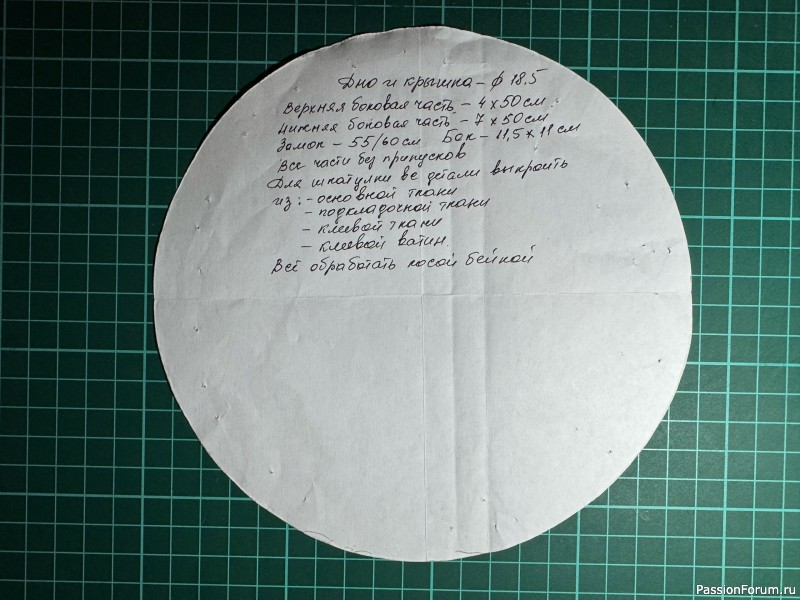 Дно и крышка – ϕ 18.5
Верхняя боковая часть – 4 х 50 см.
Нижняя боковая часть – 7 х 50 см
Замок – 55/60 см Бок – 11,5 х 11 см
Все части без припусков
Для шкатулки все детали выкроить
из: – основной ткани
– подкладочной ткани
– клеевой ткани
– клеевой ватин.
Всё обработать косой бейкой
PassionForum.ru